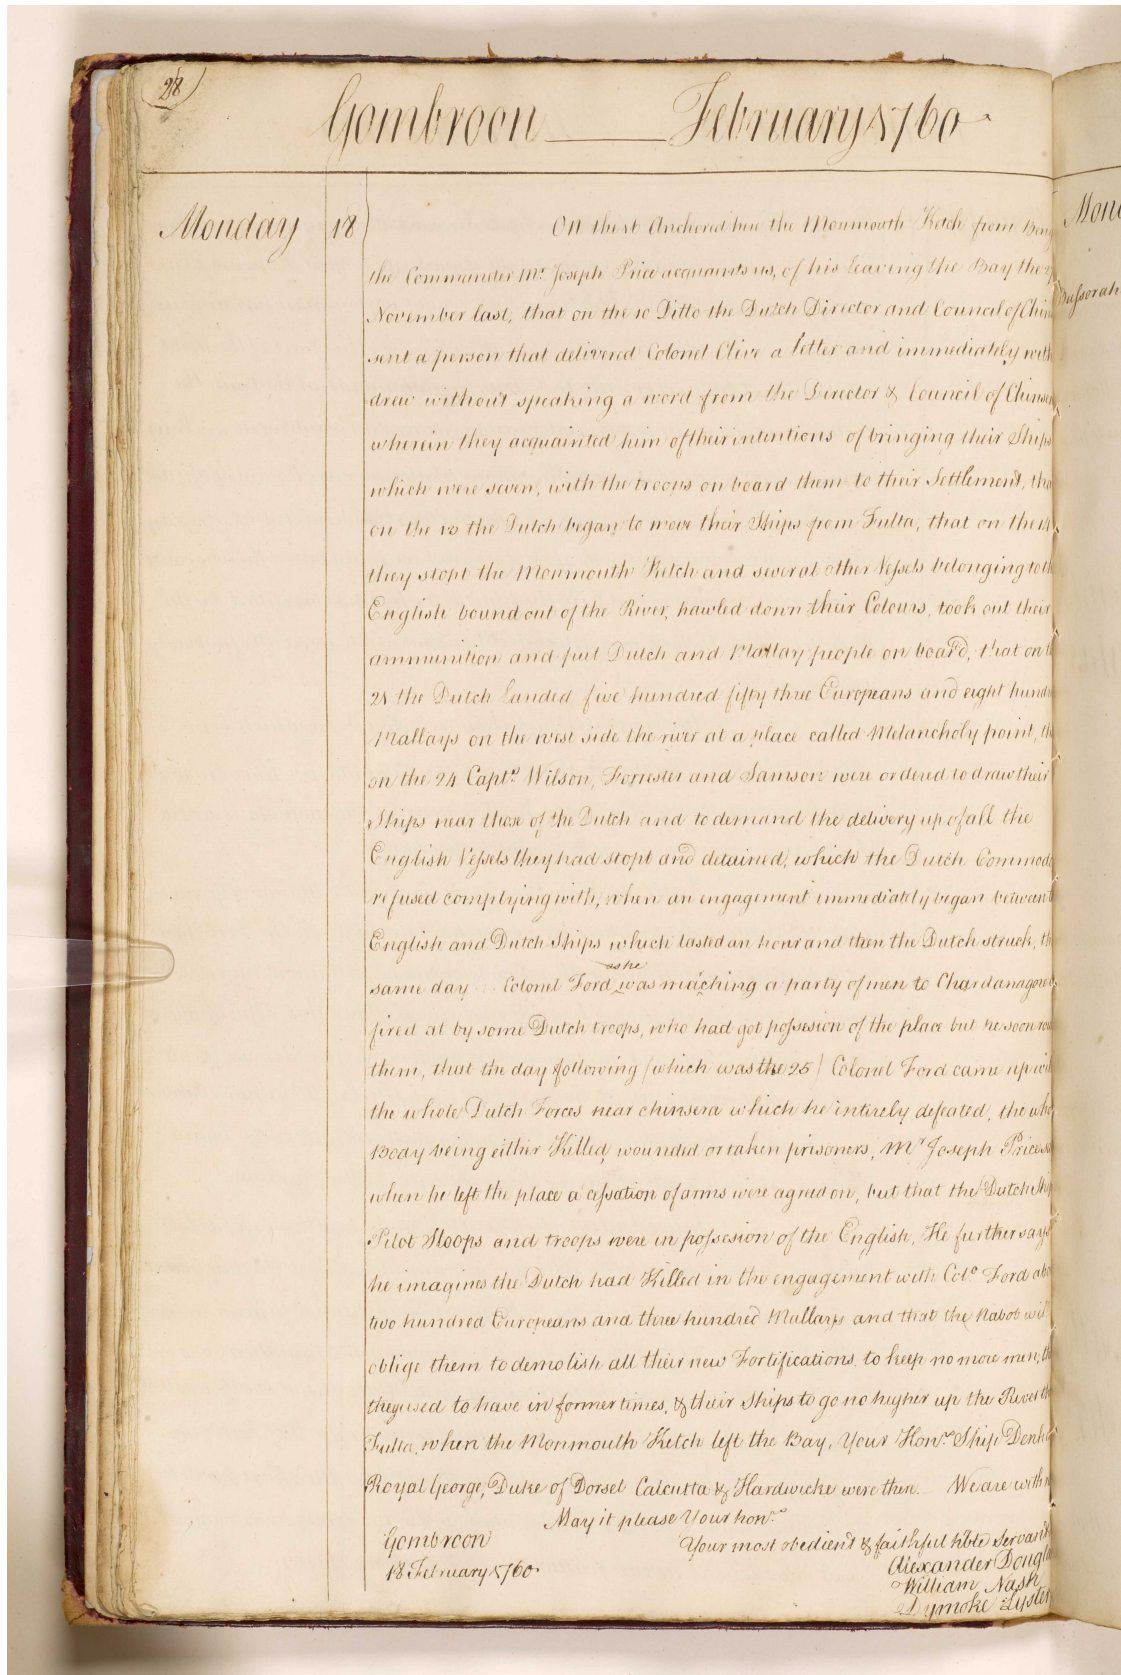 28
Gombroon February 1760
Monday 18 On the 1st Anchored here the Monmouth Ketch from
the Commander Mr. Joseph Price acquaints us, of his leaving the Bay the
November last, that on the 10 Ditto the Dutch Director and Council of
sent a person that delivered Colonel Clive a letter and immediately with
drew without speaking a word from the Director & Council of
wherein they acquainted him of their intentions of bringing their Ships
which were seven, with the troops on board them to their Settlement,
on the 10 the Dutch began to move their Ships from Fulta, that on the
they stopt the Monmouth Ketch and several other Vessels belonging to
English bound out of the River, hawled down their Colours, took out their
ammunition and put Dutch and Mallay people on board, that on
21 the Dutch Landed five hundred fifty three Europeans and eight
Mallays on the west side the river at a place called Melancholy point,
on the 24 Capts. Wilson, Forrester and Samson were ordered to draw their
Ships near those of the Dutch and to demand the delivery up of all the
English Vessels they had stopt and detained, which the Dutch
refused complying with, when an engagement immediately began
English and Dutch Ships which lasted an hour and then the Dutch struck,
same day Colonel Ford as he was maching a party of men to
fired at by some Dutch troops, who had got possesion of the place but he soon
them, that the day following (which was the 25) Colonel Ford came up
the whole Dutch Forces near chinsera which he intirely defeated, the
Body being either Killed, wounded or taken prisoners, Mr Joseph Price
when he left the place a cessation of arms were agreed on, but that the Dutch
Pilot Sloops and troops were in possesion of the English, He further says
he imagines the Dutch had Killed in the engagement with Colo. Ford
two hundred Europeans and three hundred Mallays and that the Nabob
oblige them to demolish all their new Fortifications, to keep no more men,
they used to have in former times, & their Ships to go no higher up the River
Fulta, when the Monmouth Ketch left the Bay, Your Honrs. Ship
Royal George, Duke of Dorset Calcutta & Hardwicke were there. We are with
May it please Your honrs.
Gombroon Your most obedient & faithful hble Servants
18 February 1760 Alexander
William Nash
Dymoke Lyster
Bussorah